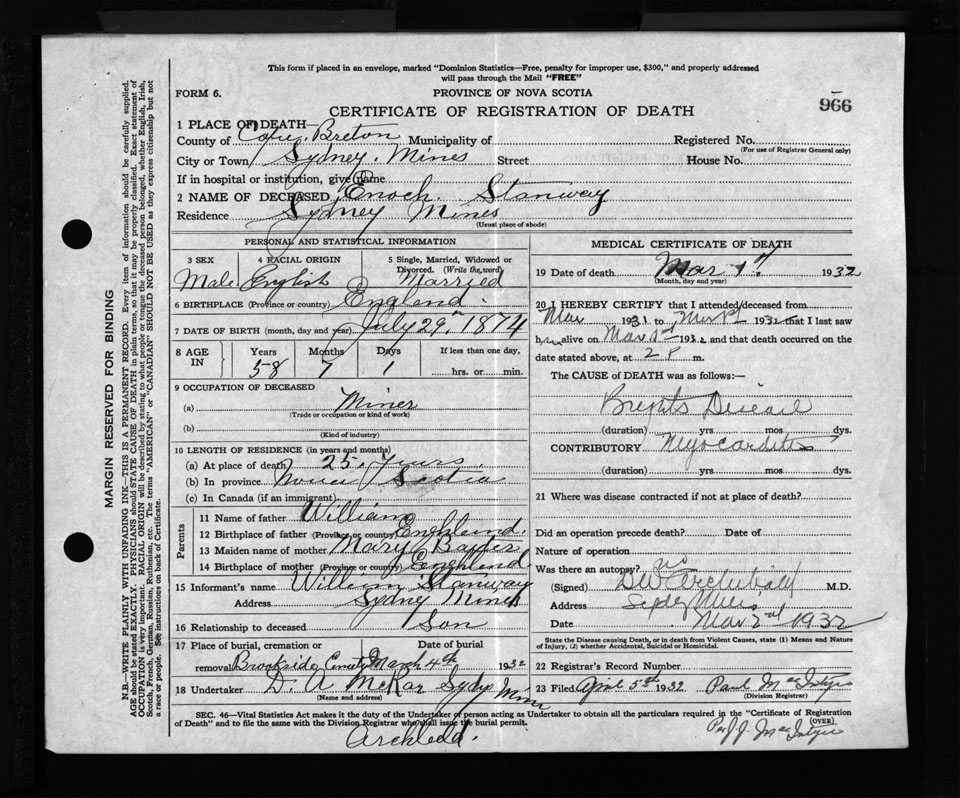 This form if placed in an envelope, marked "Dominion Statistics—Free, penalty for improper use, $300," and properly addressed
will pass through the Mail "FREE"
FORM 6.
PROVINCE OF NOVA SCOTIA
966
CERTIFICATE OF REGISTRATION OF DEATH
1 PLACE OF DEATH
County of Cape Breton Municipality of Registered No.
(For use of Registrar General only)
City or Town Sydney Mines Street House No.
If in hospital or institution, give name
2 NAME OF DECEASED Enoch Stanway
Residence Sydney Mines
(Usual place of abode)
PERSONAL AND STATISTICAL INFORMATION
3 SEX 4 RACIAL ORIGIN 5 Single, Married, Widowed or
Divorced. (Write the word)
Male English Married
6 BIRTHPLACE (Province or country) England
7 DATE OF BIRTH (month, day and year) July 29th 1874
8 AGE IN Years Months Days If less than one day,
58 7 1 hrs. or min.
9 OCCUPATION OF DECEASED
(a) Miner
(Trade or occupation or kind of work)
(b)
(Kind of industry)
10 LENGTH OF RESIDENCE (in years and months)
(a) At place of death 25 Years
(b) In province Nova Scotia
(c) In Canada (if an immigrant)
Parents
11 Name of father William
12 Birthplace of father (Province or country) England
13 Maiden name of mother Mary
14 Birthplace of mother (Province or country) England
15 Informant's name William Stanway
Address Sydney Mines
16 Relationship to deceased Son
17 Place of burial, cremation or Date of burial
removal Brookside March 4th 1932
18 Undertaker D. A. Sydy Mines
(Name and address)
MEDICAL CERTIFICATE OF DEATH
19 Date of death Mar 1st 1932
(Month, day and year)
20 I HEREBY CERTIFY that I attended/deceased from
Mar 1931 to Mar 1st 1932 that I last saw
him alive on Mar 1st 1932 and that death occurred on the
date stated above, at 2 P m.
The CAUSE of DEATH was as follows:—
Brights Disease
(duration) yrs mos dys.
CONTRIBUTORY Myocarditis
(duration) yrs mos dys.
21 Where was disease contracted if not at place of death?
Did an operation precede death? Date of
Nature of operation
Was there an autopsy? no
(Signed) DW Archibald M.D.
Address Sydney Mines
Date Mar 2nd 1932
State the Disease causing Death, or in death from Violent Causes, state (1) Means and Nature
of Injury, (2) whether Accidental, Suicidal or Homicidal.
22 Registrar's Record Number
23 Filed April 5th 1932 Paul MacIntyre
(Division Registrar)
SEC. 46—Vital Statistics Act makes it the duty of the Undertaker or person acting as Undertaker to obtain all the particulars required in the "Certificate of Registration
of Death" and to file the same with the Division Registrar who shall issue the burial permit.
(OVER)
Per J. J. MacIntyre
MARGIN RESERVED FOR BINDING
N.B.—WRITE PLAINLY WITH UNFADING INK—THIS IS A PERMANENT RECORD. Every item of information should be carefully supplied.
AGE should be stated EXACTLY. PHYSICIANS should STATE CAUSE OF DEATH in plain terms, so that it may be properly classified. Exact statement of
OCCUPATION is very important. RACIAL ORIGIN will be described by stating to what people or tongue the deceased person belonged, whether English, Irish,
Scotch, French, German, Russian, Ruthenian, etc. The terms "AMERICAN" or "CANADIAN" SHOULD NOT BE USED as they express citizenship but not
a race or people. See instructions on back of Certificate.